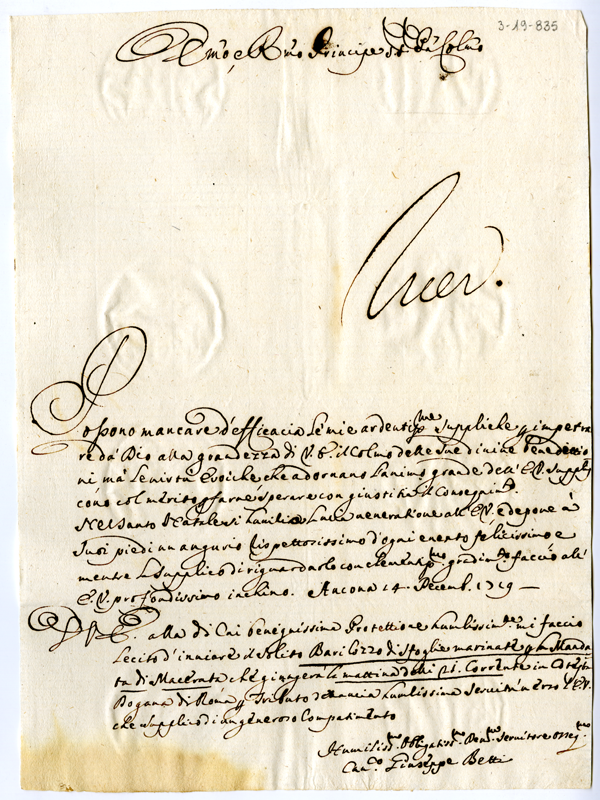 3-19-835
Em̃o, e Rm̃o Principe
Ricev.
Possono mancare d'efficacia le mie ardentis.me suppliche p impetra
re da Dio alla grandezza di V. E. il Colmo delle Sue divine benedittio
ni mà le virtù Eroiche che adornano l'animo grande dell' E. V. suppli
cono col merito p farne sperare con giustitia il
Nel Santo Natale si humilia la mia veneratione all' E. V. e depone à
suoi piedi un augurio rispettosissimo d'ogni evento felicissimo e
mentre la supplico di riguardarlo con clementis.mo gradim.to faccio all'
E. V. profondissimo inchino. Ancona 14. Decemb. 1719 —
D. V. E. alla di Cui benignissima Protettione humilissim.te mi faccio
lecito d'inviare il solito Barilozzo di Sfoglie marinate p la Manda
ta di Macerata che giungerà la mattina delli 21. Corrente in Cotesta
Dogana di Roma p Tributo della mia humilissima servitù verso l'E. V.
che supplico di un generoso Compatimento
Humilis.mo Obligatis.mo Dev.mo Servitore Osseq.mo
Can.co Giuseppe Betti